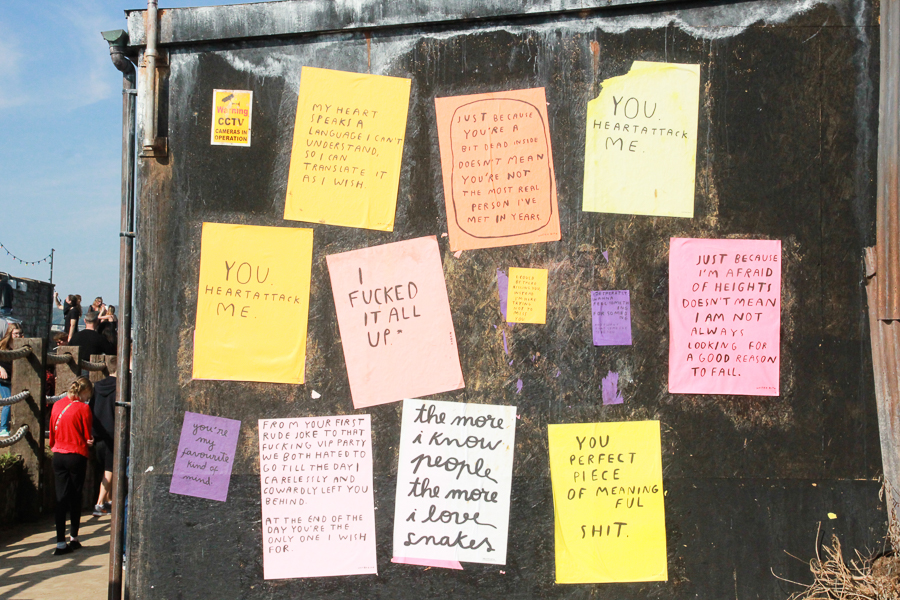 Warning
CCTV
CAMERAS IN
OPERATION
MY HEART
SPEAKS A
LANGUAGE I CAN'T
UNDERSTAND,
SO I CAN
TRANSLATE IT
AS I WISH.
JUST BECAUSE
YOU'RE A
BIT DEAD INSIDE
DOESN'T MEAN
YOU'RE NOT
THE MOST REAL
PERSON I'VE
MET IN YEARS
YOU.
HEARTATTACK
ME.
YOU.
HEARTATTACK
ME.
I
FUCKED
IT ALL
UP."
JUST BECAUSE
I'M AFRAID
OF HEIGHTS
DOESN'T MEAN
I AM NOT
ALWAYS
LOOKING FOR
A GOOD REASON
TO FALL.
you're
my
favourite
kind of
mind
FROM YOUR FIRST
RUDE JOKE TO THAT
FUCKING VIP PARTY
WE BOTH HATED TO
GO TILL THE DAY I
CARELESSLY AND
COWARDLY LEFT YOU
BEHIND.
AT THE END OF THE
DAY YOU'RE THE
ONLY ONE I WISH
FOR.
the more
i know
people
the more
i love
snakes
YOU
PERFECT
PIECE
OF MEANING
FUL
SHIT.